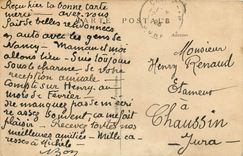 CARTE POSTALE
Reçu hier ta bonne carte
merci. avons
fait de belles randonnées
en auto avec les gens de
Nancy. Maman et moi
allons bien. Suis toujours
sous le charme de sa
réception amicale.
Compte sur Henry au
mois de Février
ne manquez pas de m'écri
re assez souvent, ça me fait
plaisir. Recevez toutes nos
meilleures amitiés. Mille ca
resses à Michele
Monsieur
Henry Renaud
Etameur
à
Chaussin
Jura